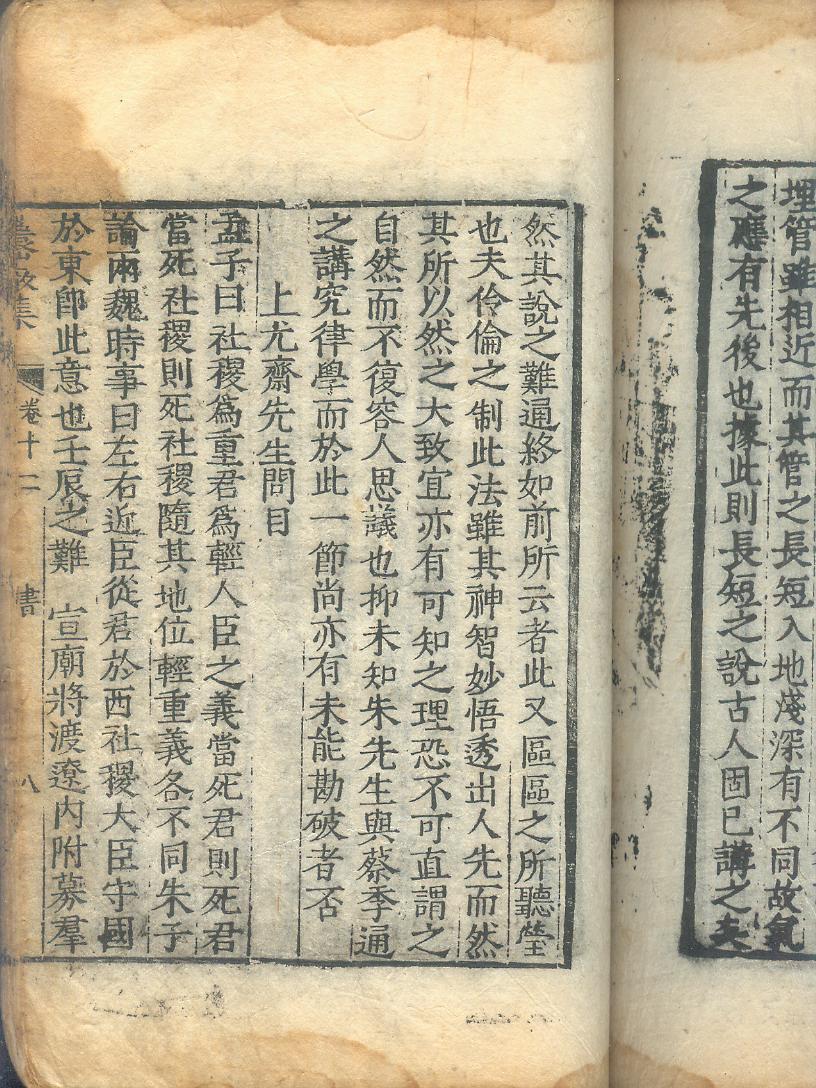 埋管雖相近而其管之長短入地淺深有不同故氣
之應有先後也據此則長短之說古人固已講之矣
然其說之難通終如前所云者此又區區之所聽瑩
也夫伶倫之制此法雖其神智妙悟透出人先而然
其所以然之大致宜亦有可知之理恐不可直謂之
自然而不復容人思議也抑未知朱先生與蔡季通
之講究律學而於此一節尚亦有未能勘破者否
上尤齋先生問目
孟子曰社稷爲重君爲輕人臣之義當死君則死君
當死社稷則死社稷隨其地位輕重義各不同朱子
論兩魏時事曰左右近臣從君於西社稷大臣守國
於東卽此意也壬辰之難 宣廟將渡遼內附募羣
集 卷十二 書 八